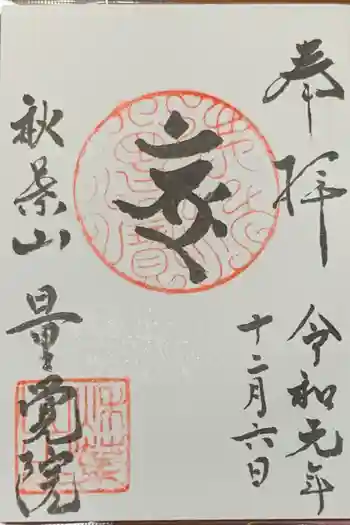 奉拝
令和元年
十二月六日
秋葉山
量覚院